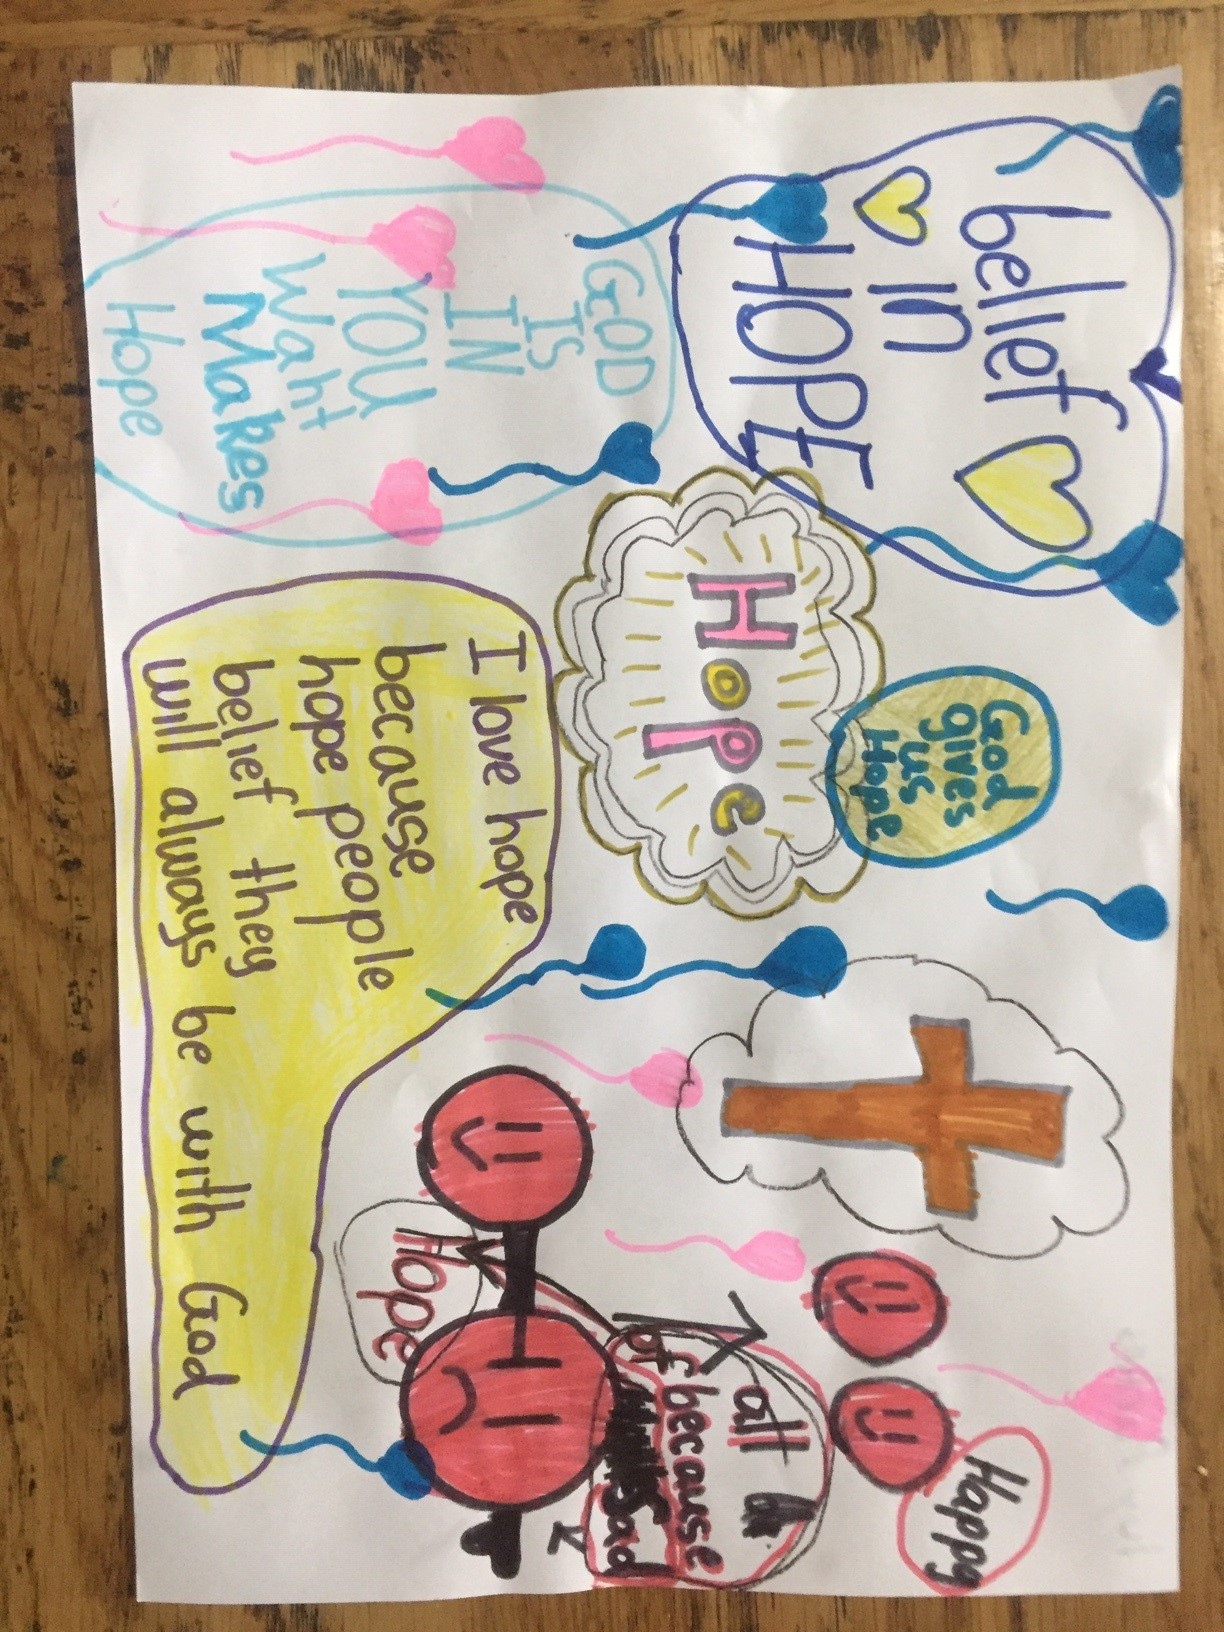 belief
in
HOPE
GOD
IS
IN
YOU
Waht
Makes
Hope
Hope
God
gives
us
Hope
I love hope
because
hope people
belief they
will always be with God
Happy
all
because
of
Sad
Hope